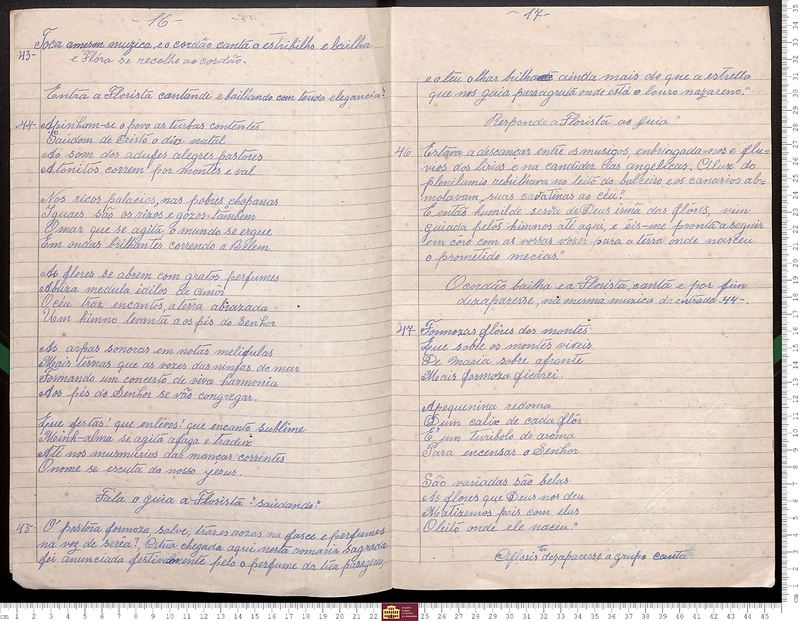 - 16 -
Toca amesm muzica, e o cordão canta o estribilho e bailha
43-
e Flóra se recolhe ao cordão.
Entra a Florista cantande e bailiando com toudo elegancia"
44- Apinham-se o povo as turbas contentes
Saudom de Cristo o dia natal
Ao som dos adufes alegres pastores
Atonitos correm por montes e val
Nos ricos palacios, nas pobres chopanas
Iguaes são os rizos e gozos tambem
O mar que se agita, o mundo se ergue
Em ondas brilhantes correndo a Belem
As flores se abrem com gratos perfumes
Abriza medula idilos de amôr
O céu traz encantos, a terra abrazada
Um himno levanta aos pés do Senhor
As arpas sonoras em notas melifulas
Mais ternas que as vozes das ninfas do mar
Formando um concerto de viva harmonia
Aos pés do Senhor se vão congregar.
Que festas! que enlevos! que encanto sublime
Minh-alma se agita afaga e traduz
Até nos murmurios das mancas correntes
Onome se escuta do nosso yesus.
Fala o guia a Florista "saudando"
45- O' pastora formoza, salve, trazes rozas na fasce e perfumes
na voz de seria? Atua chegada aqui nesta romaria sagrada
foi anunciada festivamente pelo o perfume da tua paragem,
- 17 -
e o teu olhar brilhante ainda mais do que a estrella
que nos guia para gruta onde está o louro nazareno."
Responde a Florista ao Guia"
46 Estava a descançar entre os musgos, embriagada nos eflu-
vios dos lirios e na candidez das angelicas. Aluz do
plenilunio rebrilhava no leito do balseiro e os canarios ab-
molavam, suas cavatinas ao céu".
E entaõ humilde serva de Deus irmã das flôres, vim
guiada pelos himnos até aqui, e eis-me pronta a seguir
em coro com as vossas vozes para a terra onde nasceu
o prometido mecias."
O cordão bailha e a Florista, canta e por fim
dizaparesse, na mesma muzica da entrada 44-.
47 Formozas flôres dos montes
Que sobre os montes viveis
De Maria sobre afronte
Mais formoza ficareis
Apequenina redoma
D'um calix de cada flôr
E' um turibolo de aroma
Para encensar o Senhor
São variadas são belas
As flores que Deus nos deu
Matizemos pois com elas
O leito onde ele naceu."
A floris ta dezaparesse a grupo canta